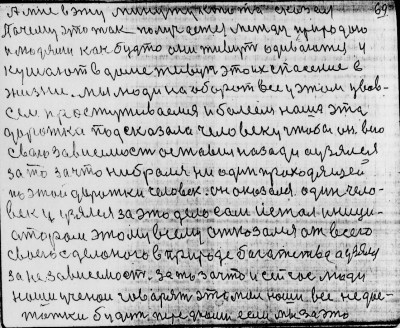 А мне в эту минуту природа сказал 69
Почему это так получается между природою
и людями как будто они живут одиваются и
кушают в доме живут это их спасение в
жизни. мы люди на оборот все у этом
сем простуживаемся и болеем наша эта
дорожка подсказала человеку чтобы он. всю
свою зависемость оставил назади и взялся
за то за что не брался ни один проходящей
по этой дорожки человек. он оказался один чело-
век и взялся за это дело сам и стал иници-
атором этому всему отказался от всего
своего сделаного в природе багатства а взялся
за независемость. за то за что и сейчас люди
наши ученаи говарят это мол наши все недос-
татки будит если мы за это